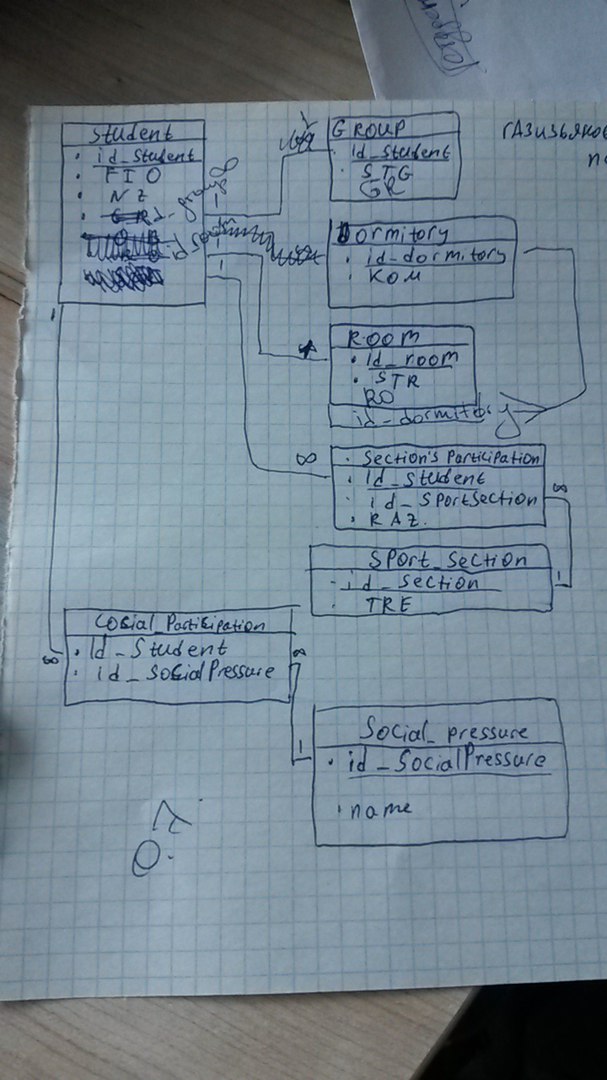 Student
id_Student
FIO
NZ
id_group
id_room
1
GROUP
id_student
STG
GR
Dormitory
id_dormitory
KOM
ROOM
id_room
STR
RO
id_dormitory
∞
Section's Participation
id_Student
id_SportSection
RAZ.
∞
SPort_Section
id_section
TRE
1
1
∞
COCial_Participation
id_Student
id_SOCialPressure
∞
1
Social_pressure
id_SocialPressure
name